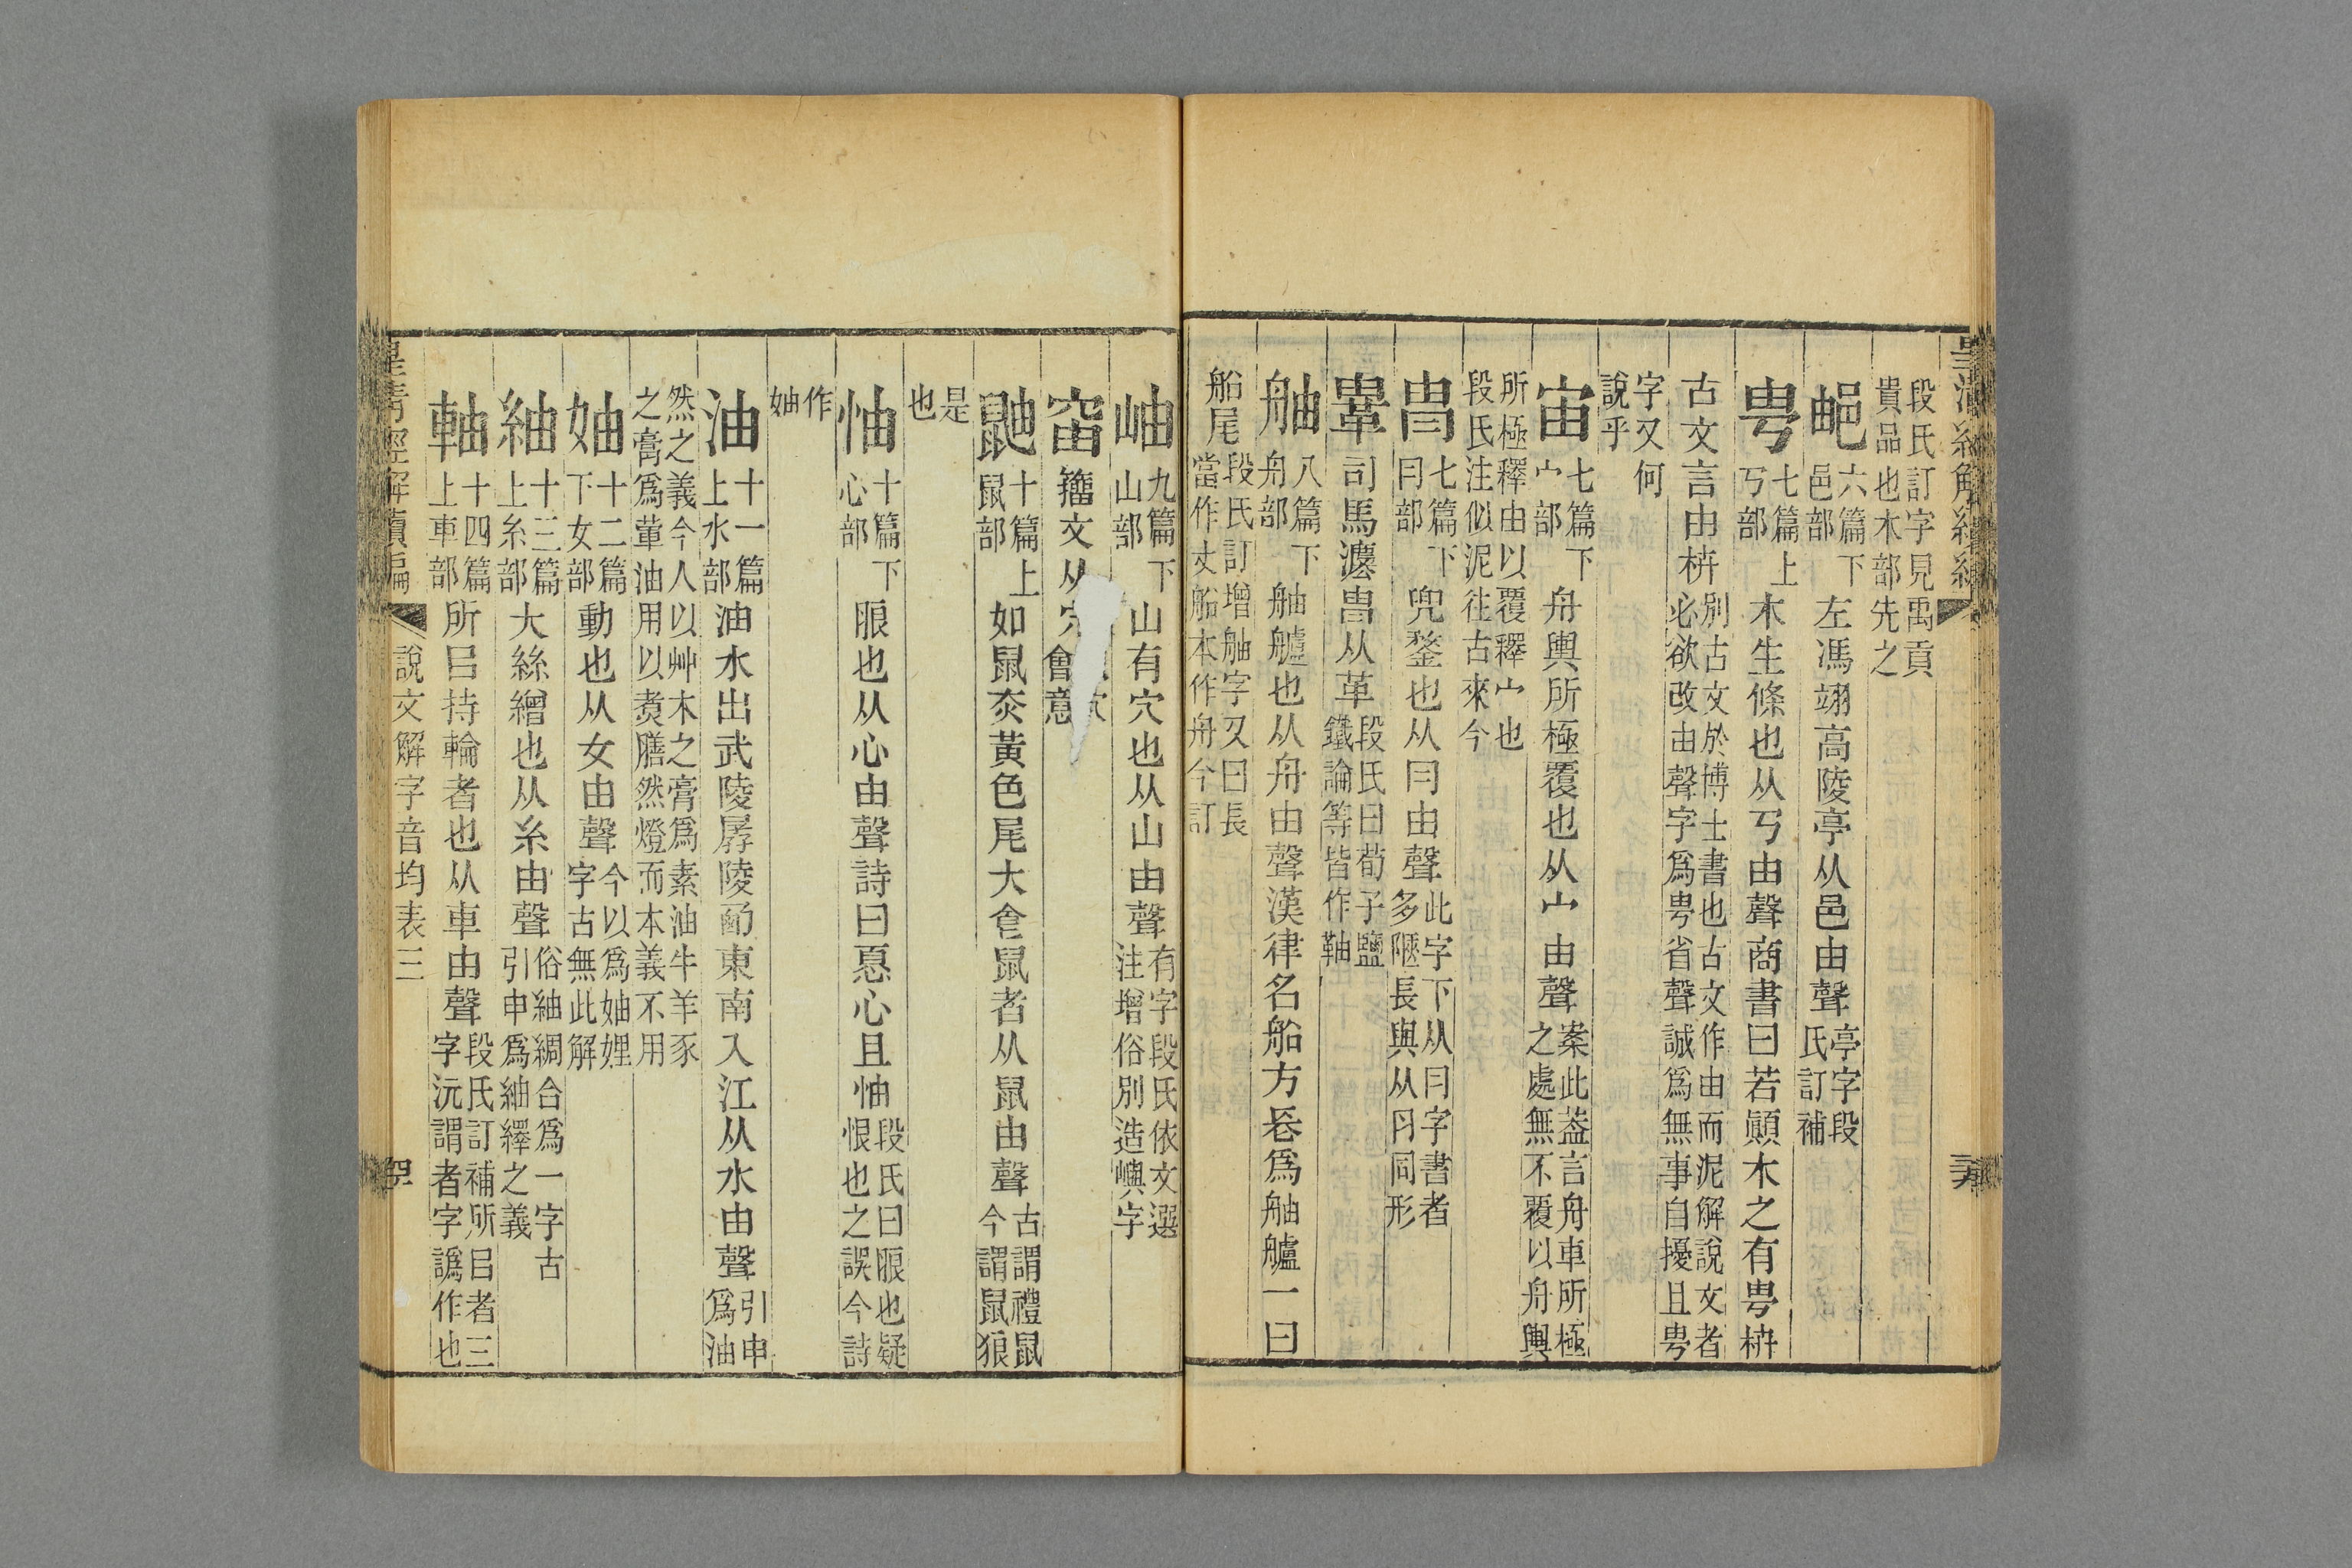 皇清經解續編
段氏訂字見禹貢
貴品也木部先之
邮六篇下邑部左馮翊高陵亭从邑由聲亭字段氏訂補
甹七篇上丂部木生條也从丂由聲商書曰若顚木之有甹枿
古文言由枿別古文於博士書也古文作由而泥解說文者必欲改由聲字爲甹省聲誠爲無事自擾且甹
字又何說乎
宙七篇下宀部舟輿所極覆也从宀由聲案此葢言舟車所極之處無不覆以舟輿
所極釋由以覆釋宀也
段氏注似泥往古來今
冑七篇下冃部兜鍪也从冃由聲此字下从冃字書者多陋長與从冄同形
𩊄司馬灋冑从革段氏曰荀子鹽鐵論等皆作䩜
舳八篇下舟部舳艫也从舟由聲漢律名船方長爲舳艫一曰
船尾段氏訂增舳字又曰長當作丈船本作舟今訂
岫九篇下山部山有穴也从山由聲有字段氏依文選注增俗別造㠘字
䆂籒文从穴會意
鼬十篇上鼠部如鼠赤黃色尾大食鼠者从鼠由聲古謂禮鼠今謂鼠狼
是也
怞十篇下心部朖也从心由聲詩曰憂心且怞段氏曰朖也疑恨也之誤今詩
作妯
油十一篇上水部油水出武陵孱陵西東南入江从水由聲引申爲油
然之義今人以艸木之膏爲素油牛羊豕
之膏爲葷油用以煑膳然燈而本義不用
妯十二篇下女部動也从女由聲今以爲妯娌字古無此解
紬十三篇上糸部大絲繒也从糸由聲俗紬綢合爲一字古引申爲紬繹之義
軸十四篇上車部所㠯持輪者也从車由聲段氏訂補所㠯者三字沅謂者字譌作也
皇清經解續編
說文解字音均表三